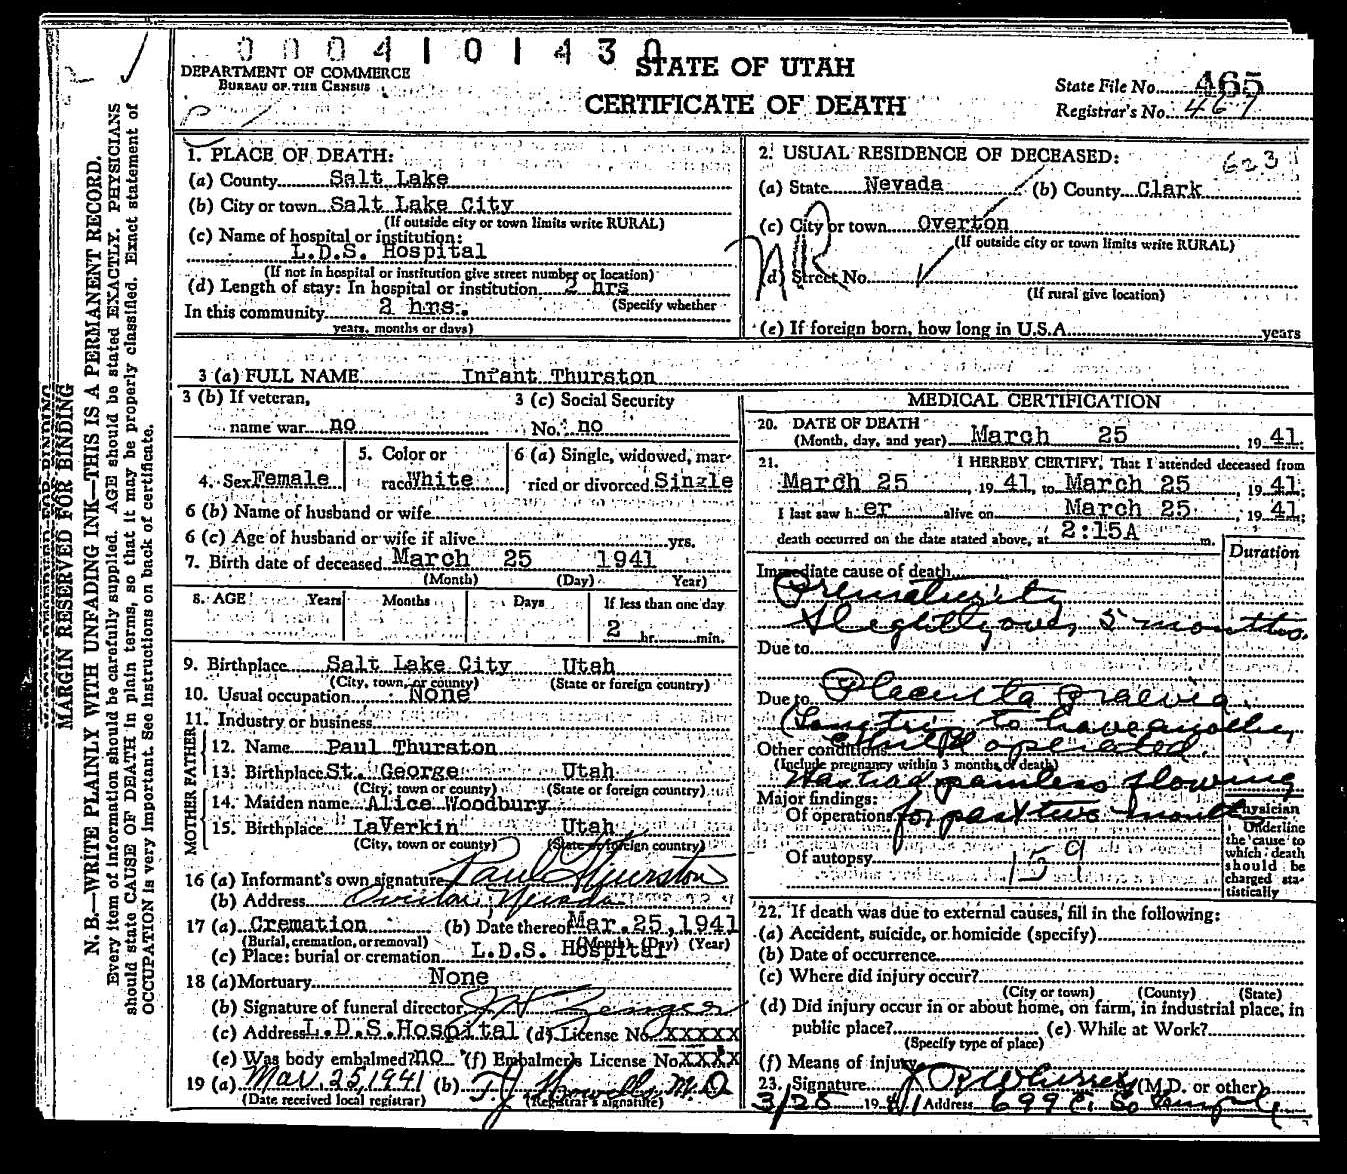 0004101430
DEPARTMENT OF COMMERCE
BUREAU OF THE CENSUS
STATE OF UTAH
CERTIFICATE OF DEATH
State File No. 465
Registrar's No. 467
MARGIN RESERVED FOR BINDING
N. B.—WRITE PLAINLY WITH UNFADING INK—THIS IS A PERMANENT RECORD.
Every item of information should be carefully supplied. AGE should be stated EXACTLY. PHYSICIANS
should state CAUSE OF DEATH in plain terms, so that it may be properly classified. Exact statement of
OCCUPATION is very important. See instructions on back of certificate.
1. PLACE OF DEATH:
(a) County Salt Lake
(b) City or town Salt Lake City
(If outside city or town limits write RURAL)
(c) Name of hospital or institution:
L.D.S. Hospital
(If not in hospital or institution give street number or location)
(d) Length of stay: In hospital or institution 2 hrs
(Specify whether
In this community 2 hrs.
years, months or days)
2. USUAL RESIDENCE OF DECEASED: 623
(a) State Nevada (b) County Clark
(c) City or town Overton
(If outside city or town limits write RURAL)
NR
(d) Street No.
(If rural give location)
(e) If foreign born, how long in U.S.A. years
3 (a) FULL NAME Infant Thurston
3 (b) If veteran, 3 (c) Social Security
name war no No. no
4. Sex Female 5. Color or race White 6 (a) Single, widowed, married or divorced Single
6 (b) Name of husband or wife
6 (c) Age of husband or wife if alive yrs.
7. Birth date of deceased March 25 1941
(Month) (Day) Year)
8. AGE Years Months Days If less than one day
2 hr. min.
9. Birthplace Salt Lake City Utah
(City, town, or county) (State or foreign country)
10. Usual occupation None
11. Industry or business
FATHER
12. Name Paul Thurston
13. Birthplace St. George Utah
(City, town or county) (State or foreign country)
MOTHER
14. Maiden name Alice Woodbury
15. Birthplace LaVerkin Utah
(City, town or county) (State or foreign country)
16 (a) Informant's own signature Paul Thurston
(b) Address Overton, Nevada
17 (a) Cremation (b) Date thereof Mar. 25, 1941
(Burial, cremation, or removal) (Month) (Day) (Year)
(c) Place: burial or cremation L.D.S. Hospital
18 (a) Mortuary None
(b) Signature of funeral director
(c) Address L.D.S. Hospital (d) License No. XXXXX
(e) Was body embalmed? no (f) Embalmer's License No. XXXX
19 (a) Mar. 25, 1941 (b) T. J. Howells, M.D.
(Date received local registrar) (Registrar's signature)
MEDICAL CERTIFICATION
20. DATE OF DEATH
(Month, day, and year) March 25 1941.
21. I HEREBY CERTIFY, That I attended deceased from
March 25, 1941, to March 25, 1941;
I last saw her alive on March 25, 1941;
death occurred on the date stated above, at 2:15A m.
Duration
Immediate cause of death
Prematurity
Slightly over 5 months.
Due to
Due to Placenta praevia.
(Long trip to have another
child operated.
Other conditions
(Include pregnancy within 3 months of death)
Has had painless flowing
Major findings:
Of operations for past two months
Of autopsy 159
Physician
Underline
the cause to
which death
should be
charged sta-
tistically
22. If death was due to external causes, fill in the following:
(a) Accident, suicide, or homicide (specify)
(b) Date of occurrence
(c) Where did injury occur?
(City or town) (County) (State)
(d) Did injury occur in or about home, on farm, in industrial place, in
public place? (e) While at Work?
(Specify type of place)
(f) Means of injury
23. Signature (M.D. or other)
3/25 1941 Address 699 E. So Temple